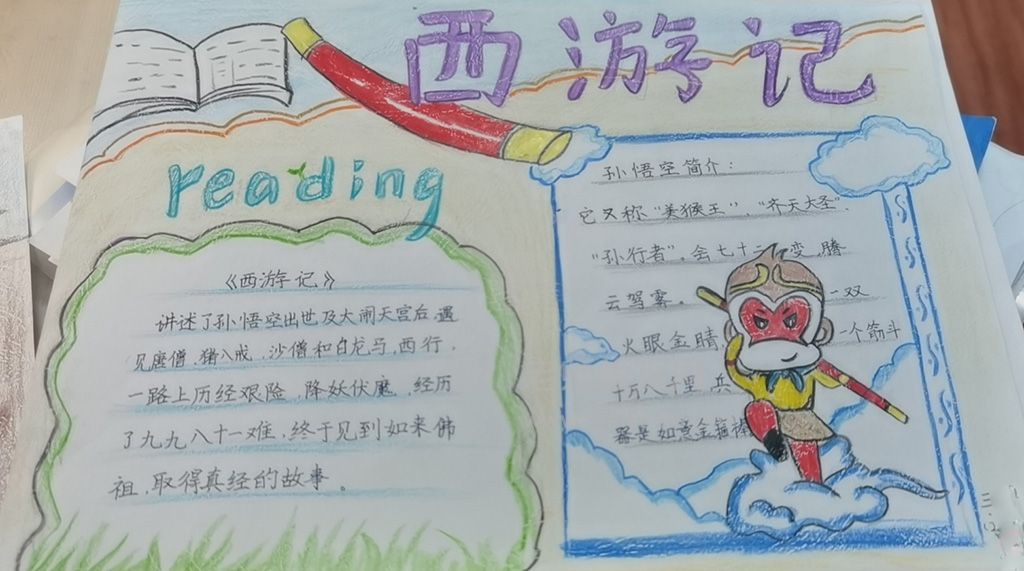 西游记
reading
《西游记》
讲述了孙悟空出世及大闹天宫后,遇
见唐僧,猪八戒,沙僧和白龙马,西行,
一路上历经艰险,降妖伏魔,经历
了九九八十一难,终于见到如来佛
祖,取得真经的故事。
孙悟空简介:
它又称“美猴王”、“齐天大圣”
“孙行者”。会七十二变,腾
云驾雾。一双
火眼金睛 一个筋斗
十万八千里,兵
器是如意金箍棒
三
12